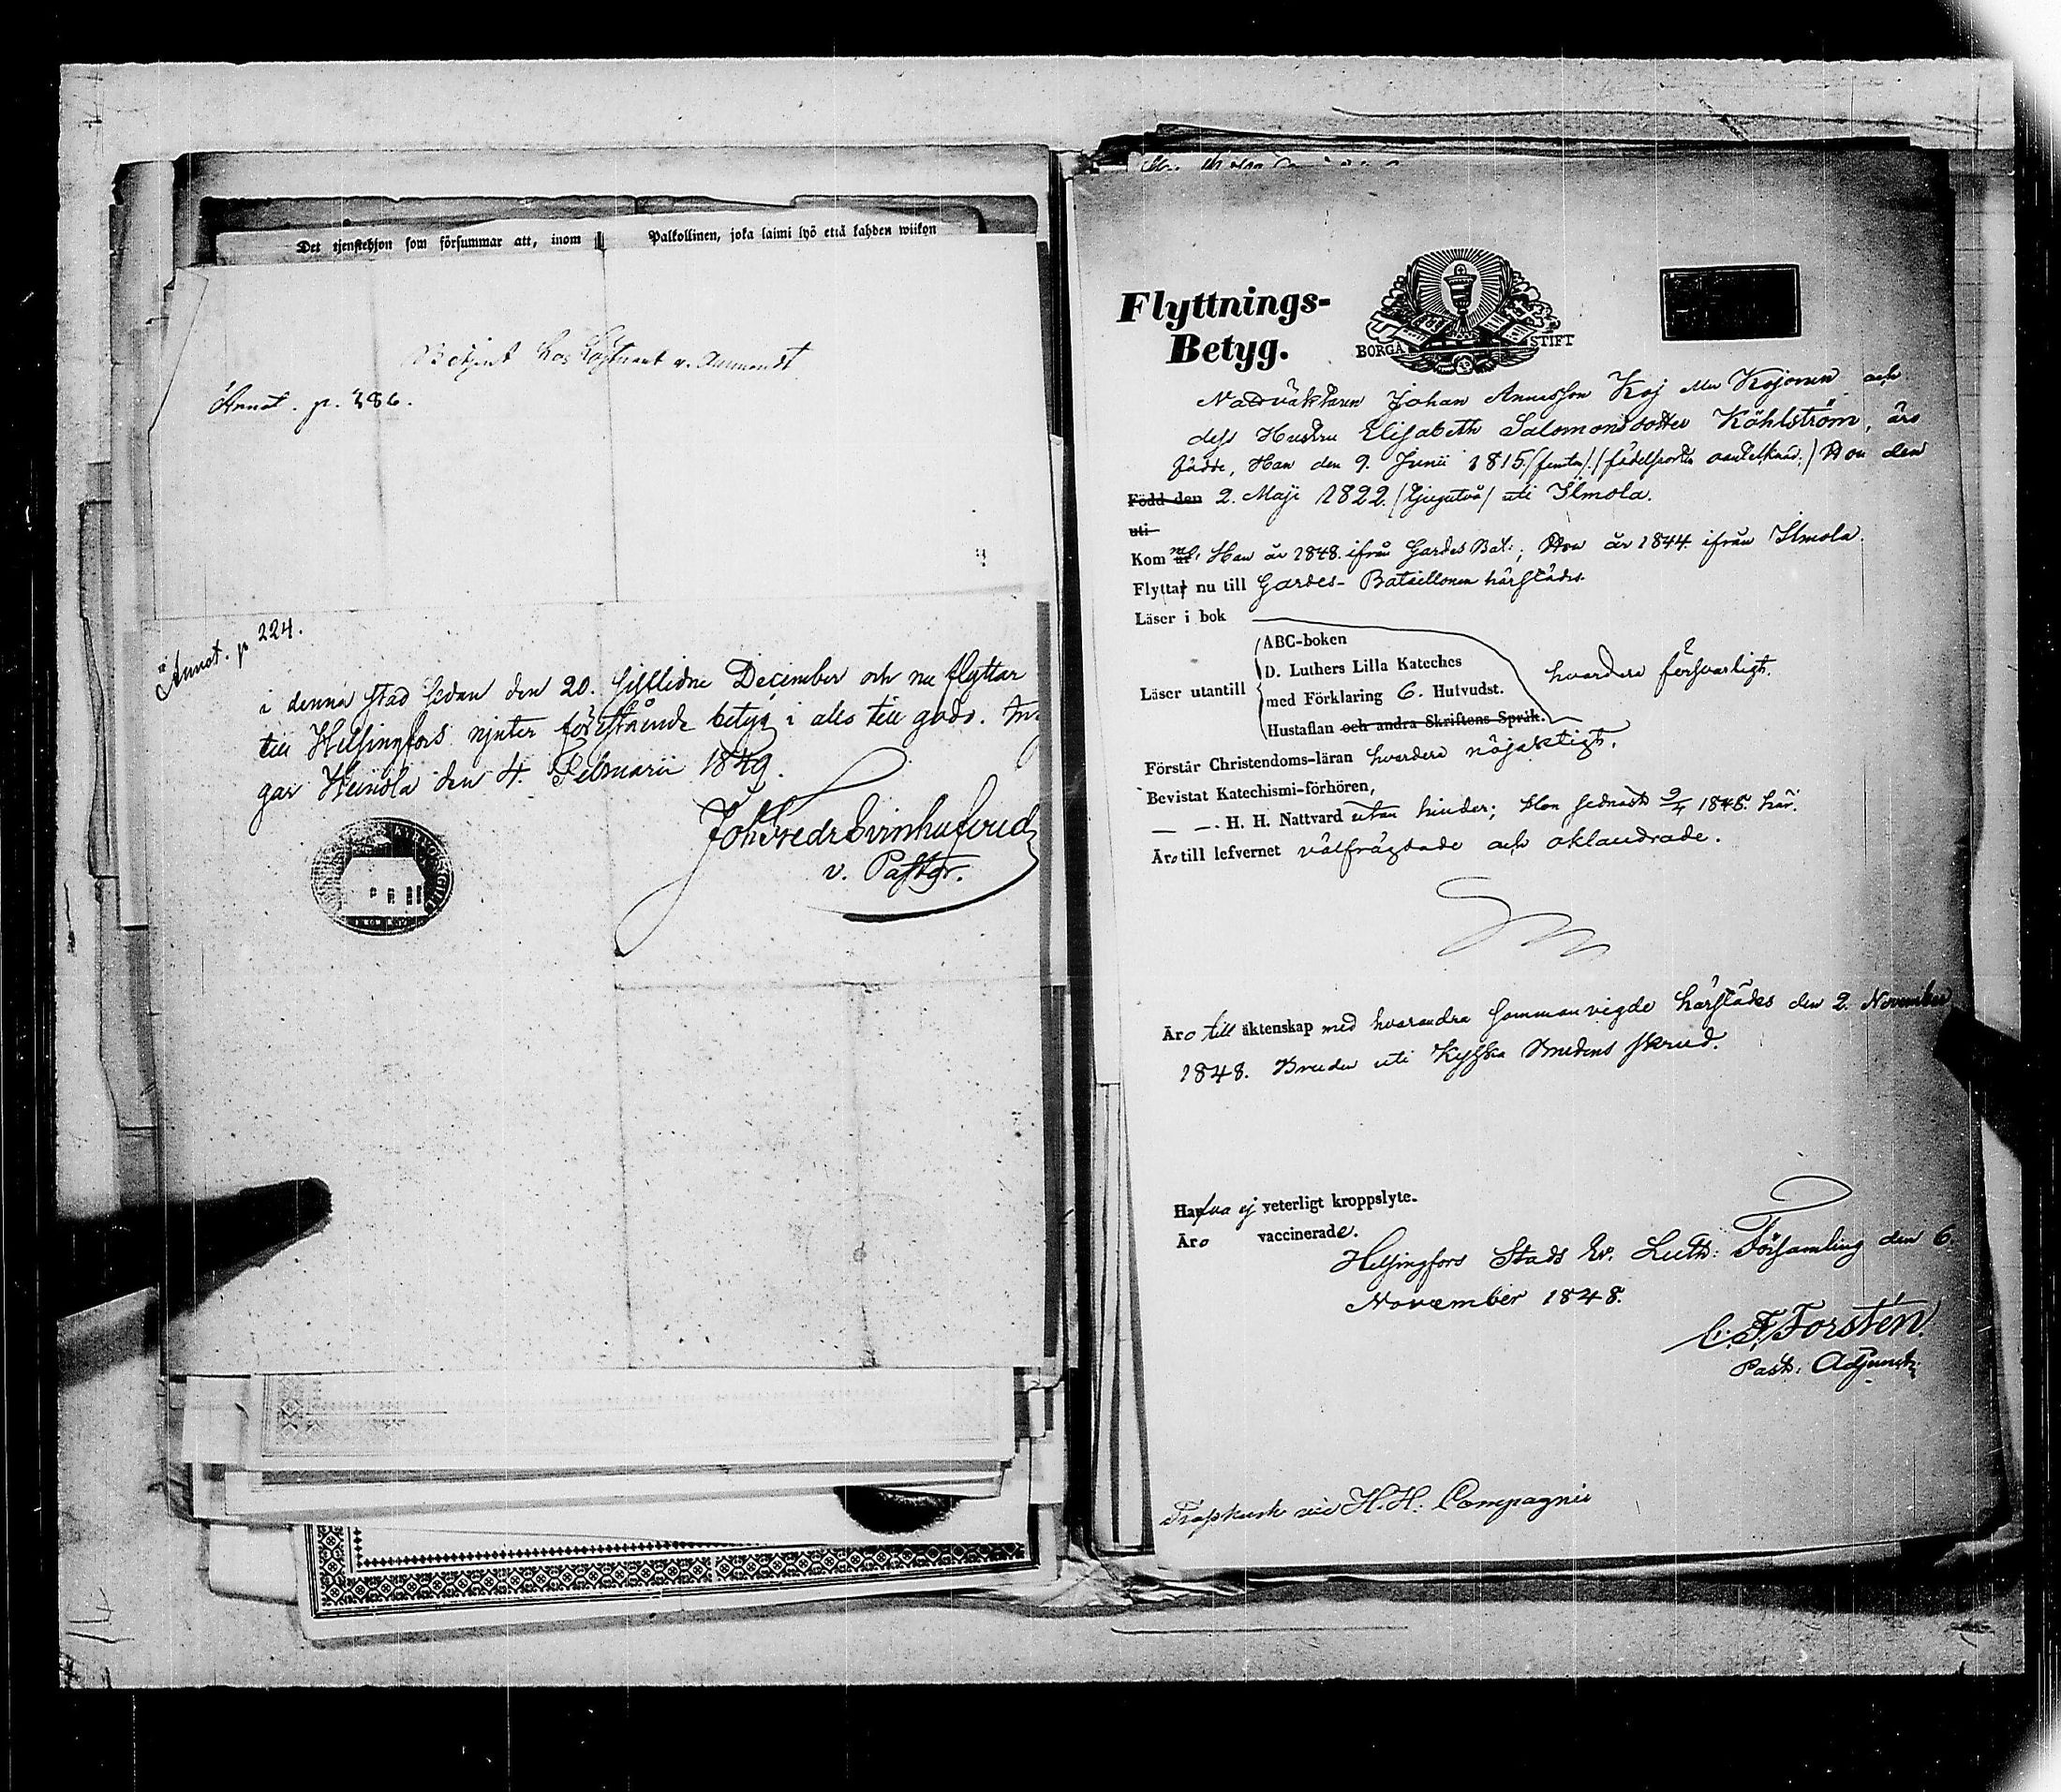 Det tjenstehjon som försummar att, inom
Palkollinen, joka laimi lyö että kahden wiikon
Betjent hos Löjtnant v. Ammondt
Annot. p. 386.
Annot. p 224.
i denna stad sedan den 20. sistlidne December och nu flyttar
till Helsingfors njuter förestående betyg i allo till godo. In
gar Heinola den 4. Februarii 1849.
Joh Fredr Svinhufvud
v. Pastor.
Flyttnings-
Betyg.
BORGÅ STIFT
Johan Annasson Koj eller Kojonen och
dess Hustru Elisabeth Salomonsdotter Köhlström, äro
födde, Han den 9. Junii 1815. (femton). Hon den
Född den 2. Maji 1822. (tjugutvå) uti Ilmola.
uti
Kom Han år 1848. ifrån Gardes Bat:; Hon år 1844. ifrån Ilmola.
Flytta nu till Gardes-Bataillonen härstädes.
Läser i bok
ABC-boken
D. Luthers Lilla Kateches
Läser utantill
med Förklaring 6. Hufvudst.
hvardera försvarligt.
Hustaflan och andra Skriftens Språk.
Förstår Christendoms-läran hvardera nöjaktigt.
Bevistat Katechismi-förhören,
— —. H. H. Nattvard utan hinder; Hon sednast 1848. här.
Äro till lefvernet välfrägdade och oklandrade.
Äro till äktenskap med hvarandra sammanvigde härstädes den 2. November
1848. Bruden uti Kyska Brudens skrud.
Hafva ej veterligt kroppslyte.
Äro vaccinerade.
Helsingfors Stads Ev. Luth: Församling den 6.
November 1848.
C. F. Forstén.
Past. Adjunct.
H. H. Compagnie